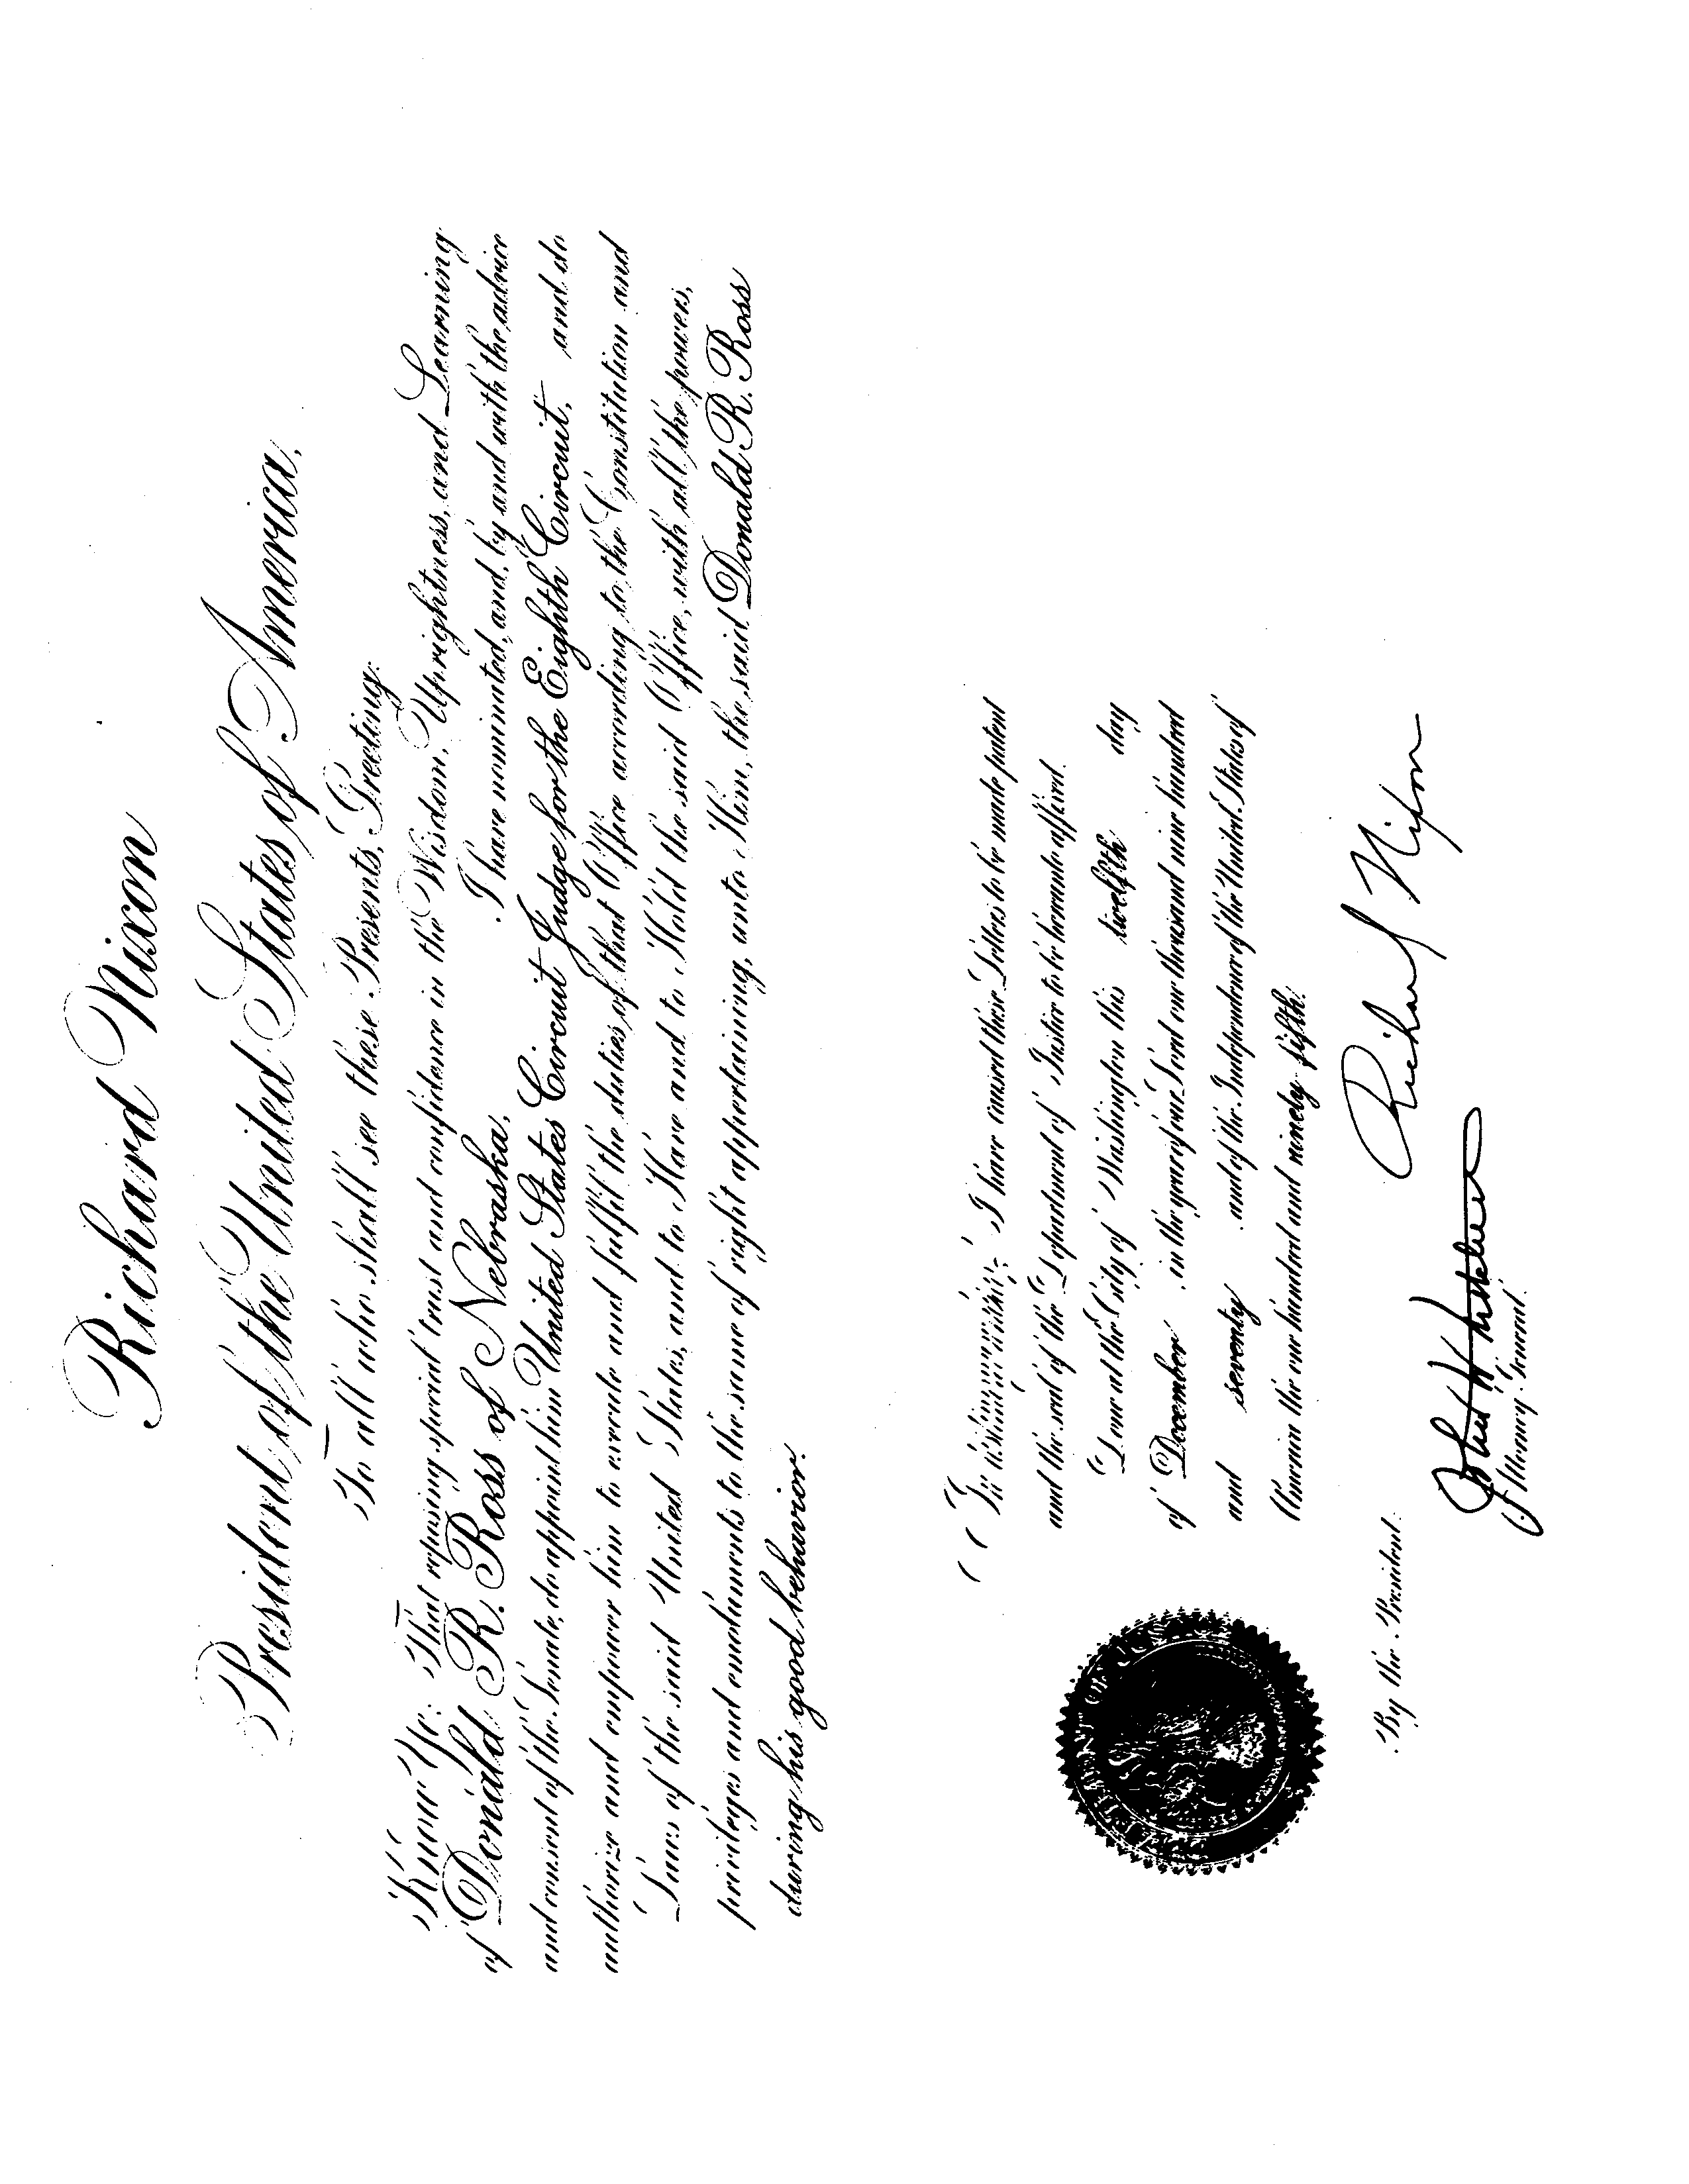 Richard Nixon
President of the United States of America,
To all who shall see these Presents, Greeting:
Know Ye: That reposing special trust and confidence in the Wisdom, Uprightness, and Learning
of Donald R. Ross of Nebraska, I have nominated, and, by and with the advice
and consent of the Senate, do appoint him United States Circuit Judge for the Eighth Circuit, and do
authorize and empower him to execute and fulfil the duties of that Office according to the Constitution and
Laws of the said United States, and to Have and to Hold the said Office, with all the powers,
privileges and emoluments to the same of right appertaining, unto Him, the said Donald R. Ross
during his good behavior.
In testimony whereof, I have caused these Letters to be made patent
and the seal of the Department of Justice to be hereunto affixed.
Done at the City of Washington this twelfth day
of December in the year of our Lord one thousand nine hundred
and seventy and of the Independence of the United States of
America the one hundred and ninety-fifth.
Richard Nixon
By the President:
John N. Mitchell
Attorney General.